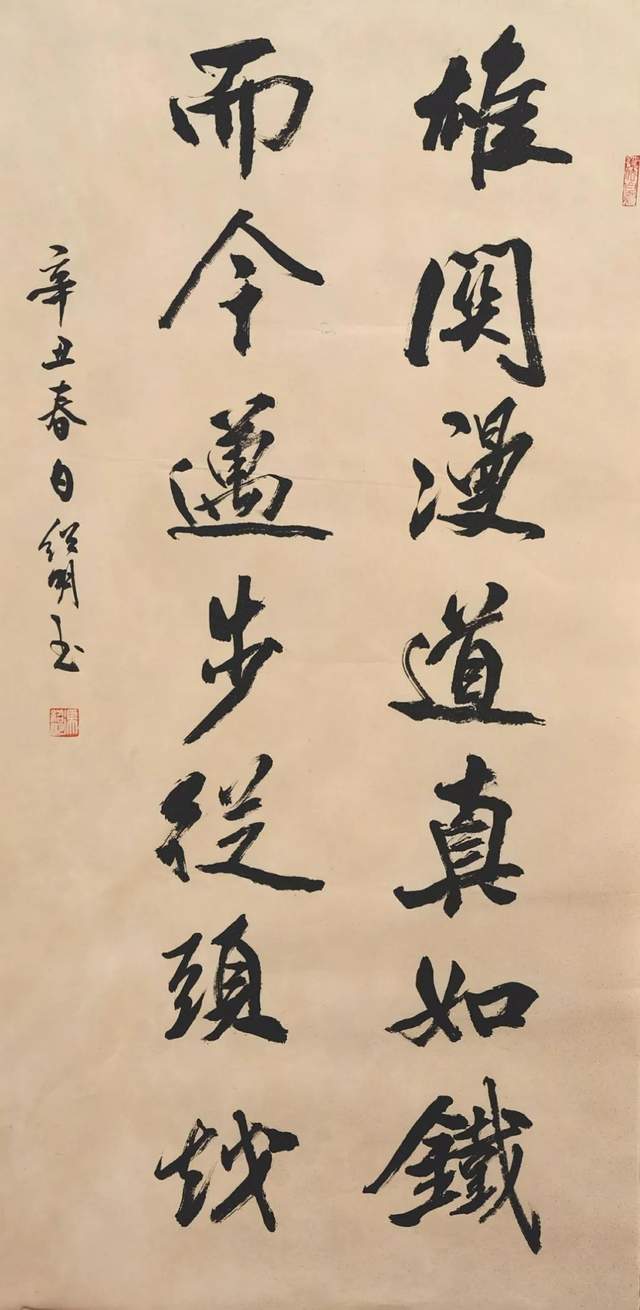 雄関漫道真如鐵
而今邁步從頭越
辛丑春白紹明玉